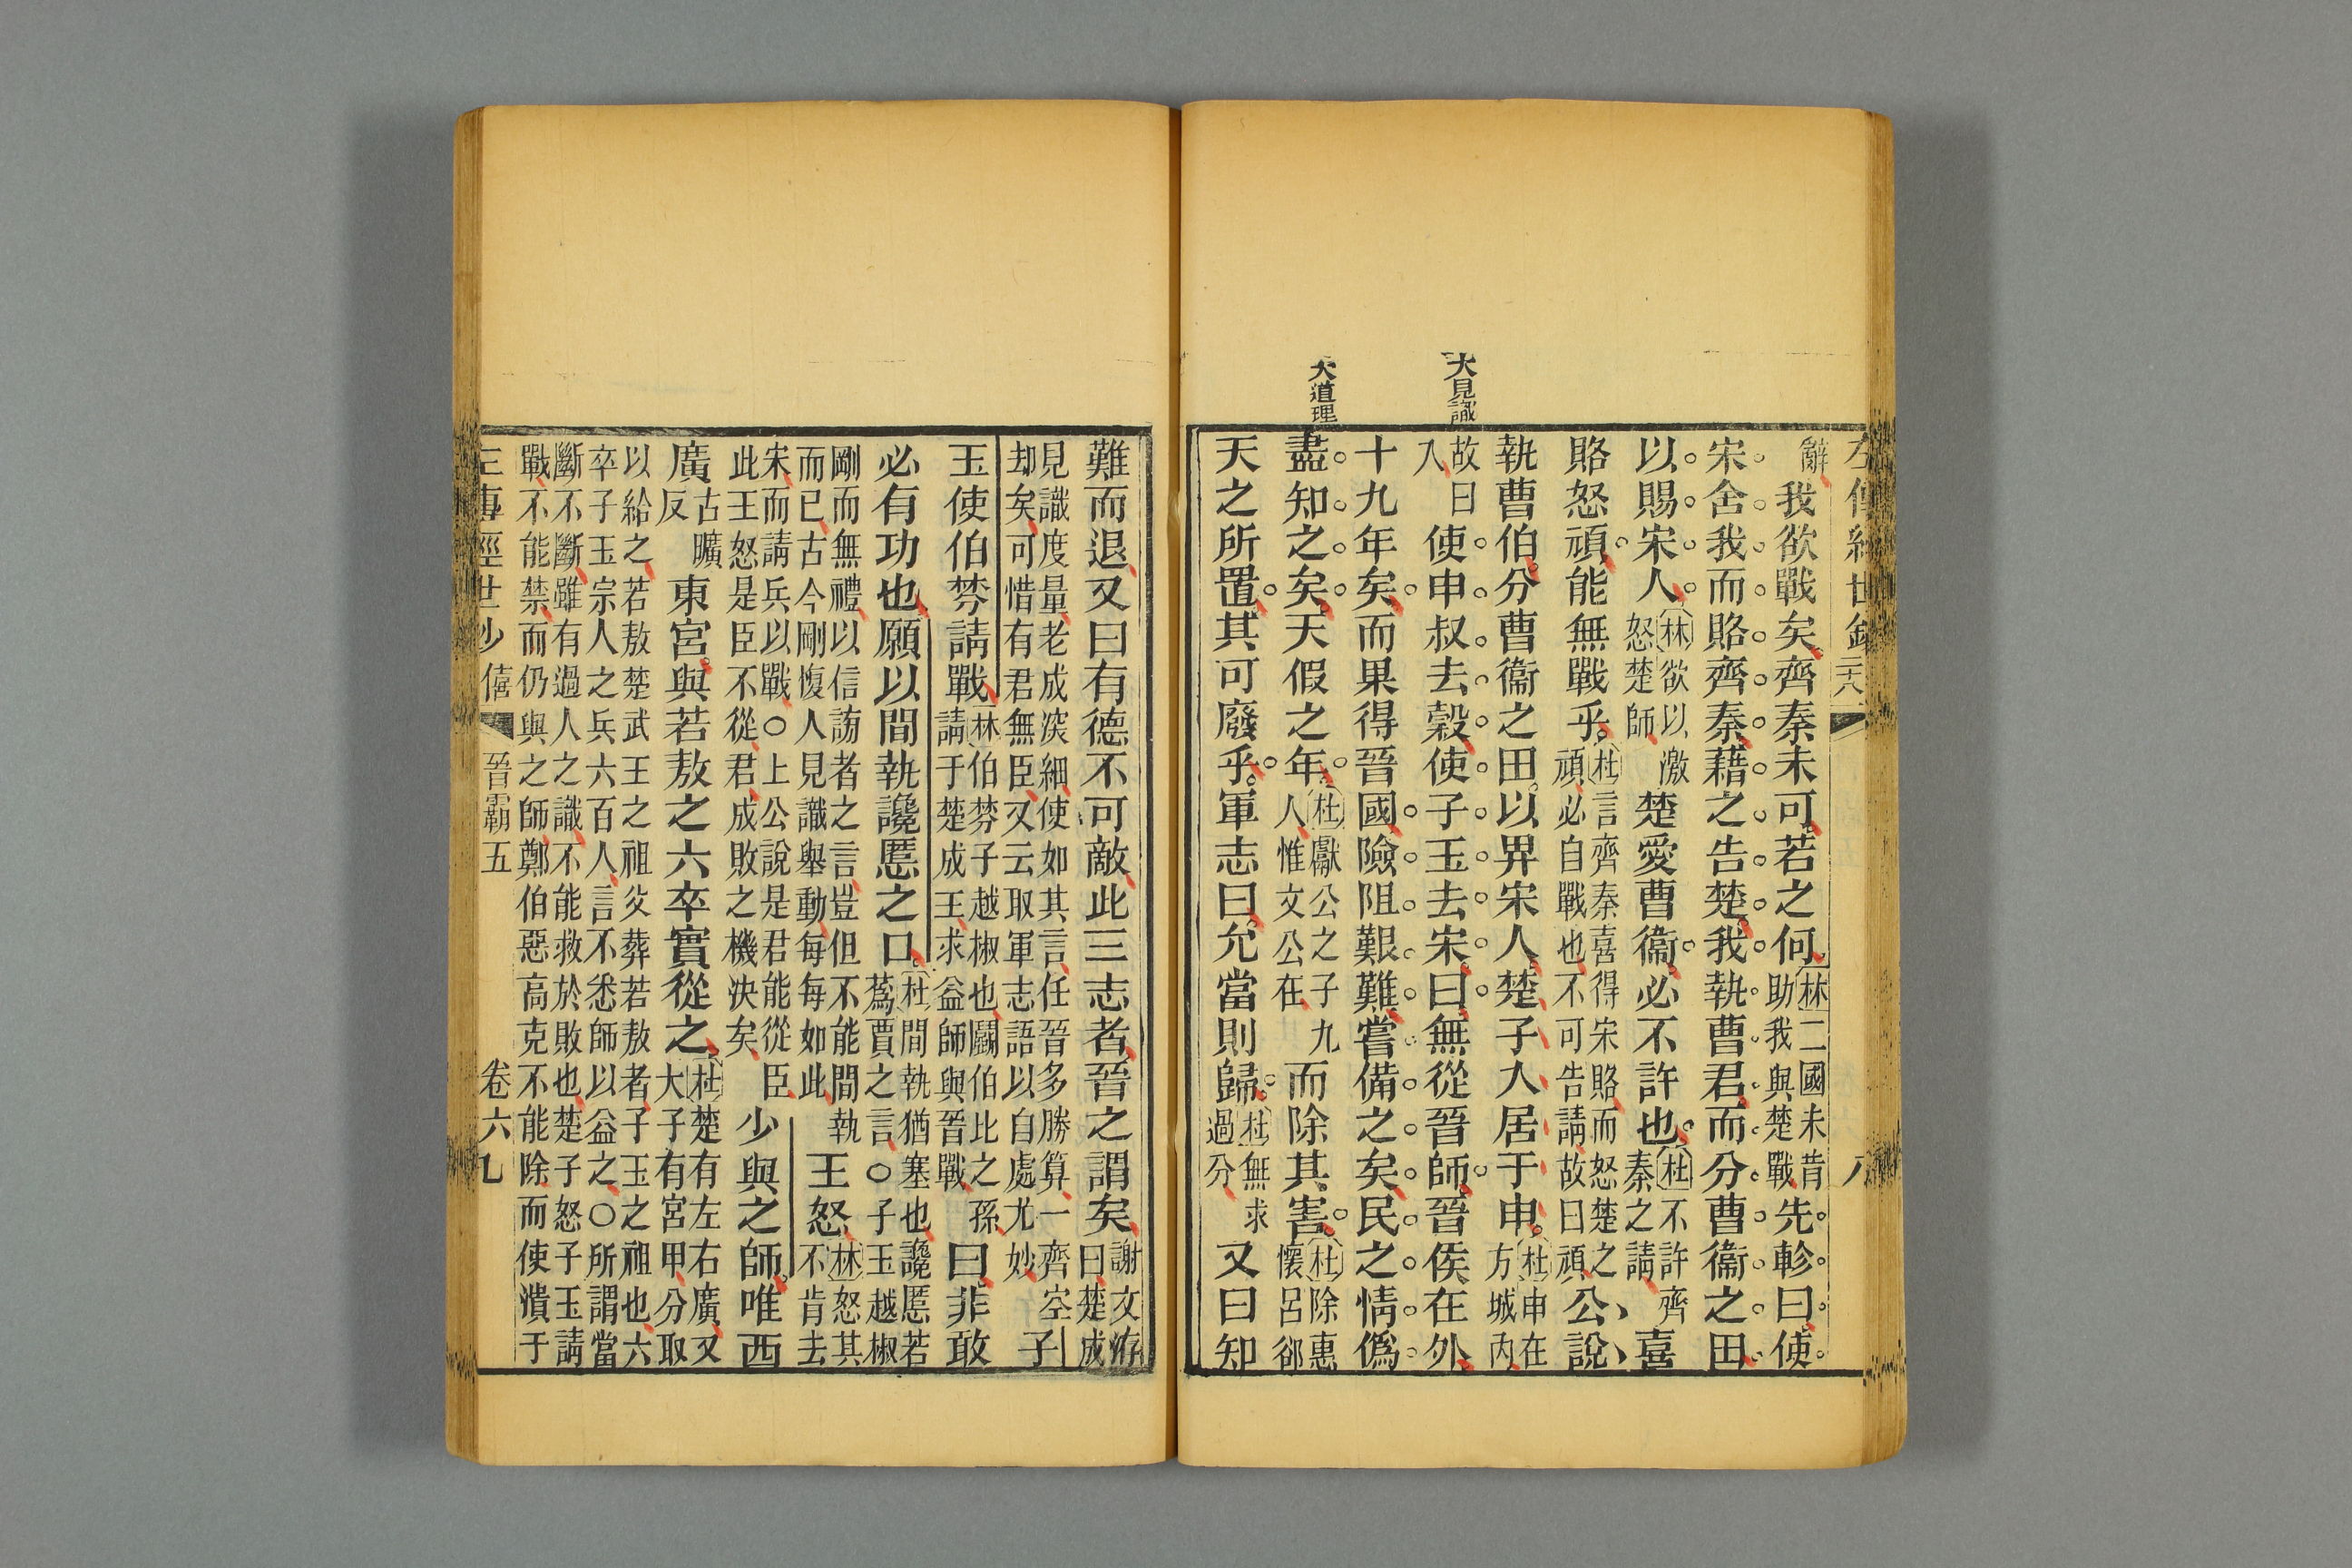 左傳經世鈔 八
大見識
大道理
辭我欲戰矣齊秦未可若之何林二國未肯助我與楚戰先軫曰使
宋舍我而賂齊秦藉之告楚我執曹君而分曹衞之田
以賜宋人林欲以激怒楚師楚愛曹衞必不許也杜不許齊秦之請喜
賂怒頑能無戰乎杜言齊秦喜得宋賂而怒楚之頑必自戰也不可告請故曰頑公說
執曹伯分曹衞之田以畀宋人楚子入居于申杜申在方城內
故曰入使申叔去穀使子玉去宋曰無從晉師晉侯在外
十九年矣而果得晉國險阻艱難嘗備之矣民之情僞
盡知之矣天假之年杜獻公之子九人惟文公在而除其害杜除惠懷呂郤
天之所置其可廢乎軍志曰允當則歸杜無求過分又曰知
難而退又曰有德不可敵此三志者晉之謂矣謝文洊曰楚成
見識度量老成深細使如其言任晉多勝算一齊空却矣可惜有君無臣又云取軍志語以自處尤妙子
玉使伯棼請戰林伯棼子越椒也鬬伯比之孫請于楚成王求益師與晉戰曰非敢
必有功也願以間執讒慝之口杜間執猶塞也讒慝若蒍賈之言○子玉越椒
剛而無禮以信謗者之言豈但不能間執而已古今剛愎人見識舉動每每如此王怒林怒其不肯去
宋而請兵以戰○上公說是君能從臣此王怒是臣不從君成敗之機決矣少與之師唯西
廣古曠反東宮與若敖之六卒實從之杜楚有左右廣又大子有宮甲分取
以給之若敖楚武王之祖父葬若敖者子玉之祖也六卒子玉宗人之兵六百人言不悉師以益之○所謂當
斷不斷雖有過人之識不能救於敗也楚子怒子玉請戰不能禁而仍與之師鄭伯惡高克不能除而使潰于
左傳經世鈔 僖 晉霸五 卷六